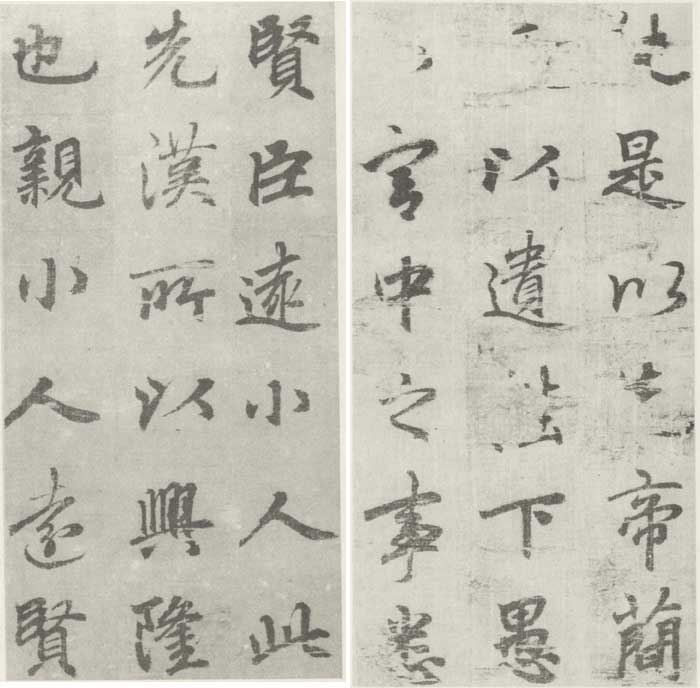 是以先帝簡
以遺陛下愚
宮中之事悉
賢臣遠小人此
先漢所以興隆
也親小人遠賢